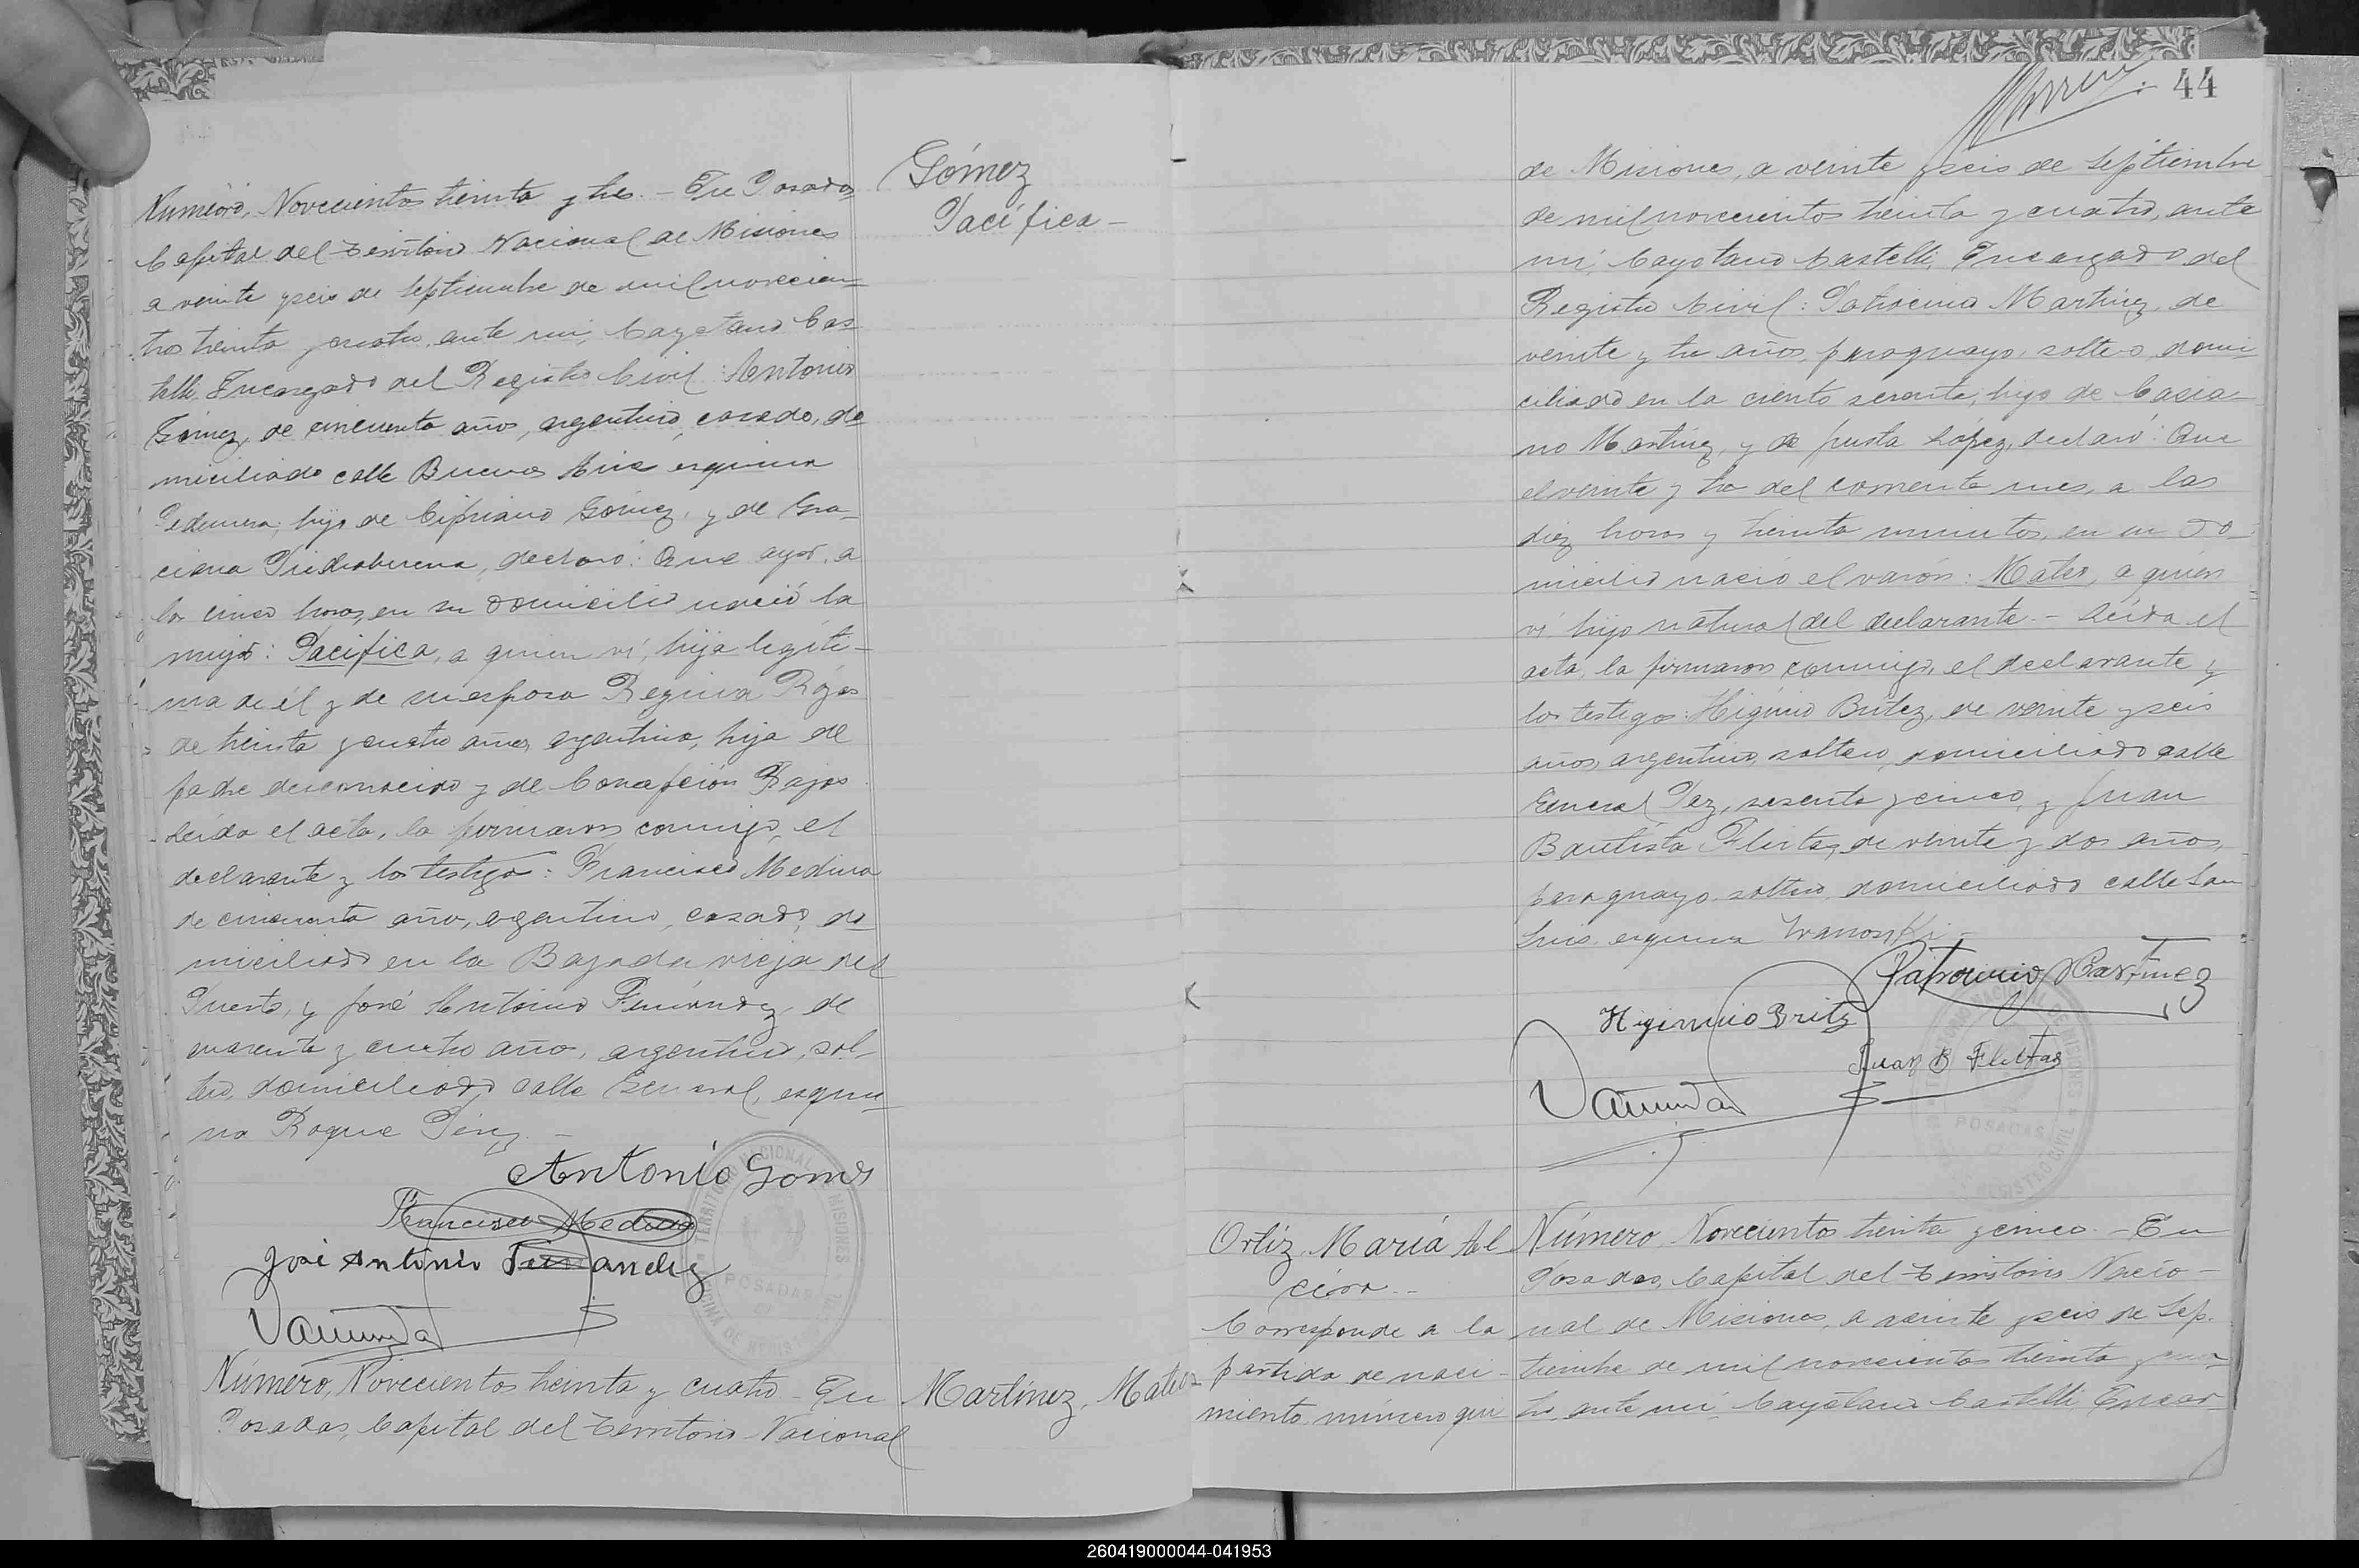 Número, Novecientos treinta y tres. – En Posadas
Capital del Territorio Nacional de Misiones
a veinte y seis de Septiembre de mil novecien=
tos treinta y cuatro, ante mi, Cayetano Cas
telli, Encargado del Registro Civil: Antonio
Gómez, de cincuenta años, argentino, casado, do
miciliado calle Buenos Aires esquina
Pedernera, hijo de Cipriano Gómez, y de Gra-
ciana, declaró: Que ayer, a
las cinco horas, en su domicilio nació la
mujer: Pacífica, a quien ví, hija legíti-
ma de él y de su esposa Regina Rojas
de treinta y cuatro años, argentina, hija de
padre desconocido y de Concepción Rojas.
Leída el acta, la firmaron conmigo, el
declarante y los testigos: Francisco Medina
de cincuenta años, argentino, casado, do
miciliado en la Bajada vieja del
Puerto, y José Antonio Fernández, de
cuarenta y cuatro años, argentino, sol-
tero, domiciliado calle esqui=
na Roque Pérez. –
Antonio Gomes
Francisco Medina
José Antonio Fernandez
TERRITORIO NACIONAL MISIONES
POSADAS
Número, Novecientos treinta y cuatro – En
Posadas, Capital del Territorio Nacional
Gómez
Pacífica –
Martínez, Mateo
44
de Misiones, a veinte y seis de Septiembre
de mil novecientos treinta y cuatro, ante
mí, Cayetano Castelli, Encargado del
Registro Civil: Patrocinio Martínez, de
veinte y tres años, paraguayo, soltero, domi-
ciliado en la ciento sesenta, hijo de Casia-
no Martínez, y de Justa López, declaró: Que
el veinte y tres del corriente mes, a las
diez horas y treinta minutos, en su do-
micilio nació el varón: Mateo, a quien
ví, hijo natural del declarante. – Leída el
acta, la firmaron conmigo, el declarante y
los testigos: Higinio Britez, de veinte y seis
años, argentino, soltero, domiciliado calle
General Paz, sesenta y cinco, y Juan
Bautista Fleitas, de veinte y dos años,
paraguayo, soltero, domiciliado calle San
Luis, esquina
Patrocinio Martinez
Higinio Britz
Juan B Fleitas
POSADAS
REGISTRO CIVIL
Ortiz, María Al
cira. –
Corresponde a la
partida de naci-
miento número qui
Número, Novecientos treinta y cinco. – En
Posadas, Capital del Territorio Nacio-
nal de Misiones, a veinte y seis de Sep-
tiembre de mil novecientos treinta y cua-
tro, ante mí, Cayetano Castelli, Encar-
260419000044-041953